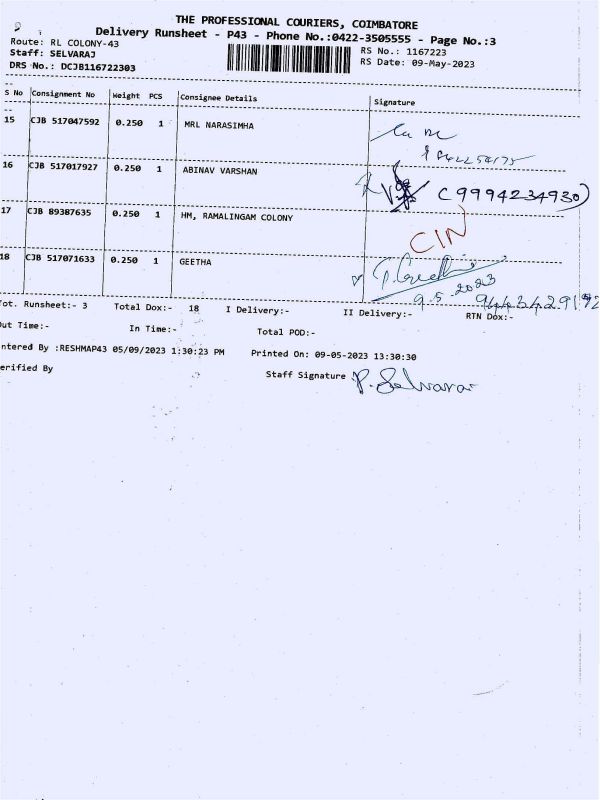 THE PROFESSIONAL COURIERS, COIMBATORE
Delivery Runsheet - P43 - Phone No.:0422-3505555 - Page No.:3
Route: RL COLONY-43
RS No.: 1167223
Staff: SELVARAJ
RS Date: 09-May-2023
DRS No.: DCJB116722303
S No Consignment No Weight PCS Consignee Details Signature
15 CJB 517047592 0.250 1 MRL NARASIMHA
16 CJB 517017927 0.250 1 ABINAV VARSHAN
(9994234930)
17 CJB 89387635 0.250 1 HM, RAMALINGAM COLONY
CIN
18 CJB 517071633 0.250 1 GEETHA
P. Geetha
9.5.2023
Tot. Runsheet:- 3 Total Dox:- 18 I Delivery:- II Delivery:- RTN Dox:-
Out Time:- In Time:- Total POD:-
ntered By :RESHMAP43 05/09/2023 1:30:23 PM Printed On: 09-05-2023 13:30:30
erified By
Staff Signature P. Selvaraj